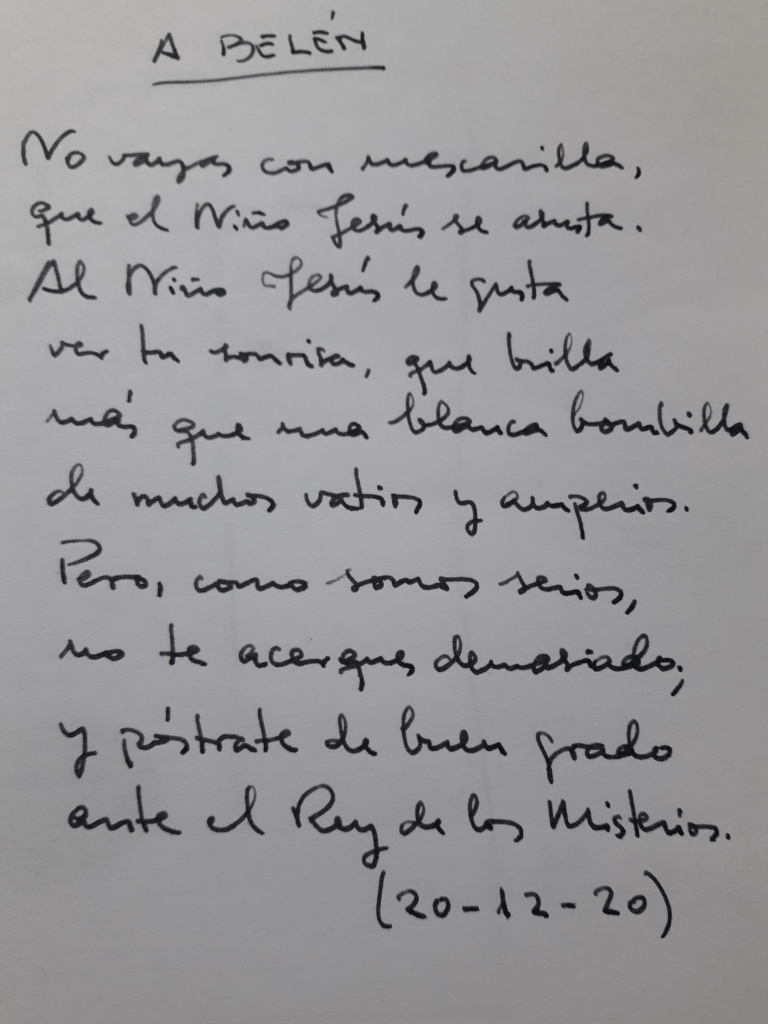 A BELÉN
No vayas con mascarilla,
que el Niño Jesús se asusta.
Al Niño Jesús le gusta
ver tu sonrisa, que brilla
más que una blanca bombilla
de muchos vatios y amperios.
Pero, como somos serios,
no te acerques demasiado;
y póstrate de buen grado
ante el Rey de los Misterios.
(20-12-20)